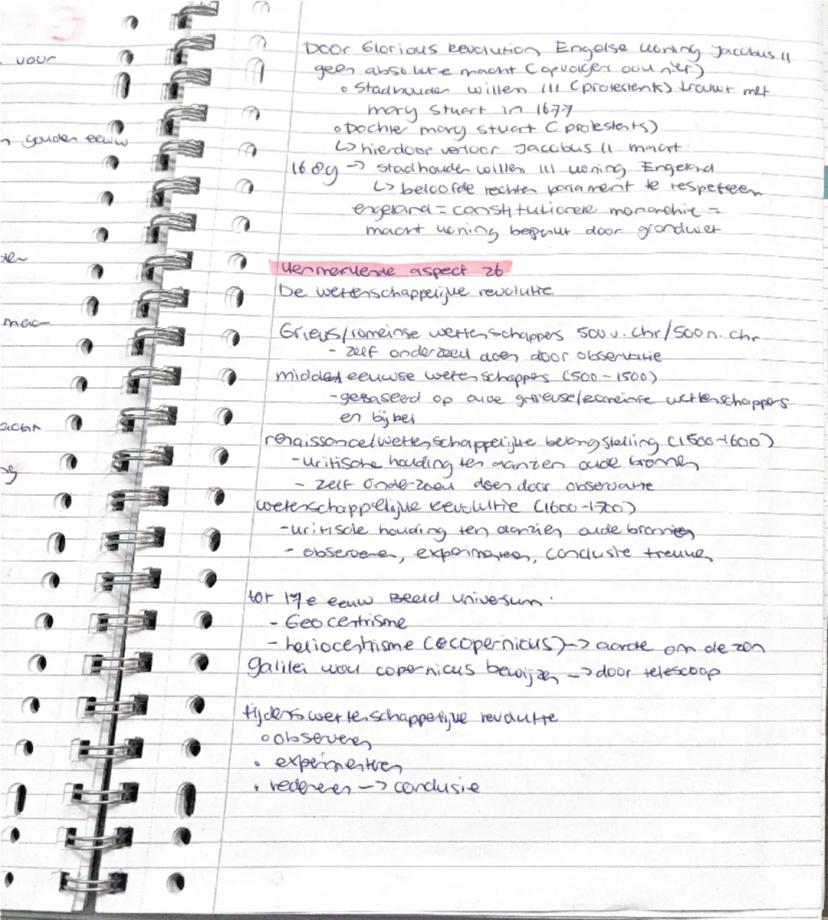 vour
n gouden eeuw
mac-
acht
Door Glorious Revolution Engelse koning Jacobus II
geen absolute macht (opvolger ook niet)
• Stadhouder willem III (protestants) trouwt met
mary Stuart in 1677
• Dochter mary stuart (protestants)
↳ hierdoor verloor Jacobus II macht
1689 → stadhouder willem III koning Engeland
↳ beloofde rechten parlament te respecteren
engeland = constitutionele monarchie =
macht koning beperkt door grondwet
Kenmerkende aspect 26
De wetenschappelijke revolutie
Grieks/romeinse wetenschappers 500 v. chr/500 n. chr
- zelf onderzoek doen door observatie
middeleeuwse wetenschappers (500-1500)
- gebaseerd op oude griekse/romeinse wetenschappers
en bijbel
renaissance/wetenschappelijke belangstelling (1500-1600)
- kritische houding ten aanzien oude bronnen
- zelf onderzoek doen door observatie
wetenschappelijke revolutie (1600-1700)
- kritische houding ten aanzien oude bronnen
- observeren, experimenteren, conclusie trekken
tot 17e eeuw Beeld universum.
- Geocentrisme
- heliocentrisme (copernicus) → aarde om de zon
Galilei wou copernicus bewijzen → door telescoop
tijdens wetenschappelijke revolutie
• observeren
• experimenteren
• redeneren → conclusie